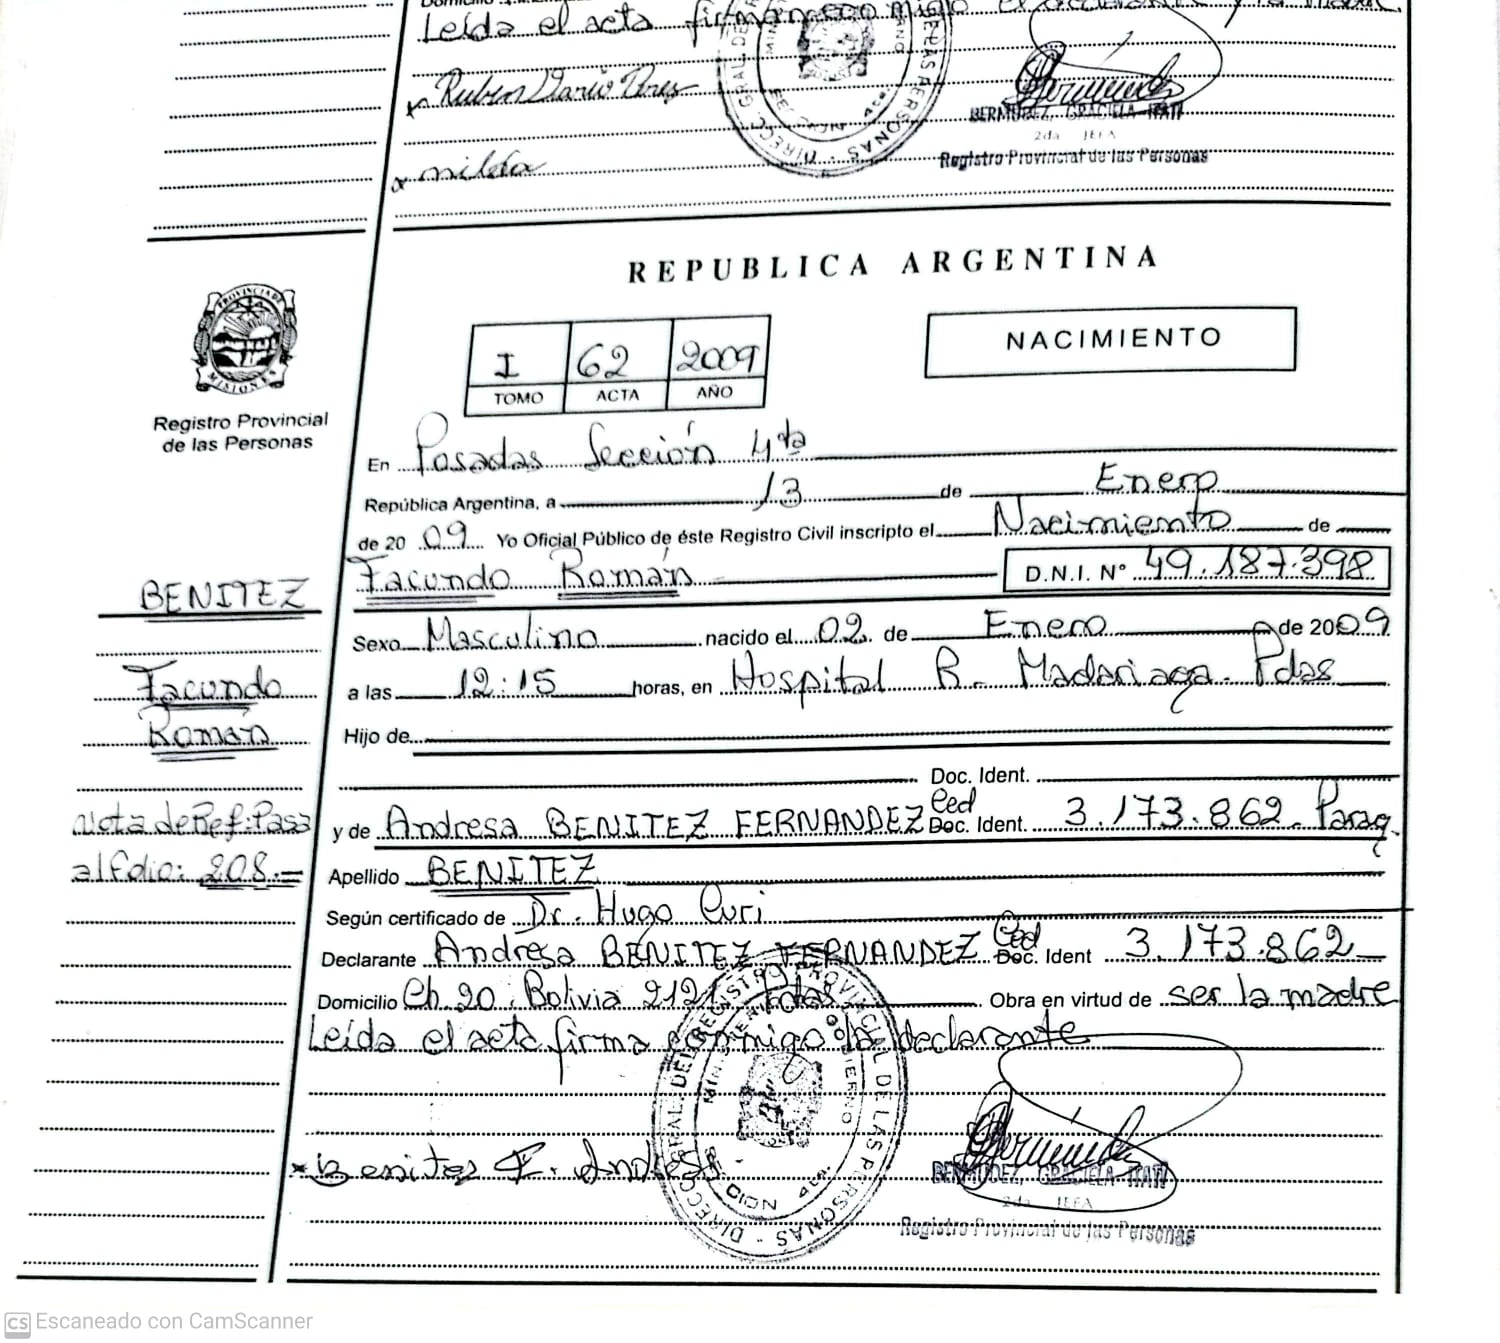 Leída el acta
Ruben Dario
BERMUDEZ, GRACIELA ITATI
2da JEFA
Registro Provincial de las Personas
REPUBLICA ARGENTINA
PROVINCIA DE
MISIONES
Registro Provincial
de las Personas
I 62 2009
TOMO ACTA AÑO
NACIMIENTO
En Posadas Sección 4ta
República Argentina, a 13 de Enero
de 2009 Yo Oficial Público de éste Registro Civil inscripto el Nacimiento de
Facundo Román D.N.I. N° 49.187.398
BENITEZ
Facundo
Román
Nota de Ref: Pasa
al Folio: 208.=
Sexo Masculino nacido el 02 de Enero de 2009
a las 12:15 horas, en Hospital R. Madariaga. Pdas
Hijo de
Doc. Ident.
y de Andresa BENITEZ FERNANDEZ Ced Doc. Ident. 3.173.862 Parag.
Apellido BENITEZ
Según certificado de Dr. Hugo
Declarante Andresa BENITEZ FERNANDEZ Ced Doc. Ident 3.173.862
Domicilio Ch. 20. Bolivia 2121 Pdas. Obra en virtud de ser la madre
Leída el acta firma conmigo la declarante
Benitez F. Andresa
DIRECC. GRAL. DEL REGISTRO PROVINCIAL DE LAS PERSONAS
BERMUDEZ, GRACIELA ITATI
2da JEFA
Registro Provincial de las Personas
CS Escaneado con CamScanner